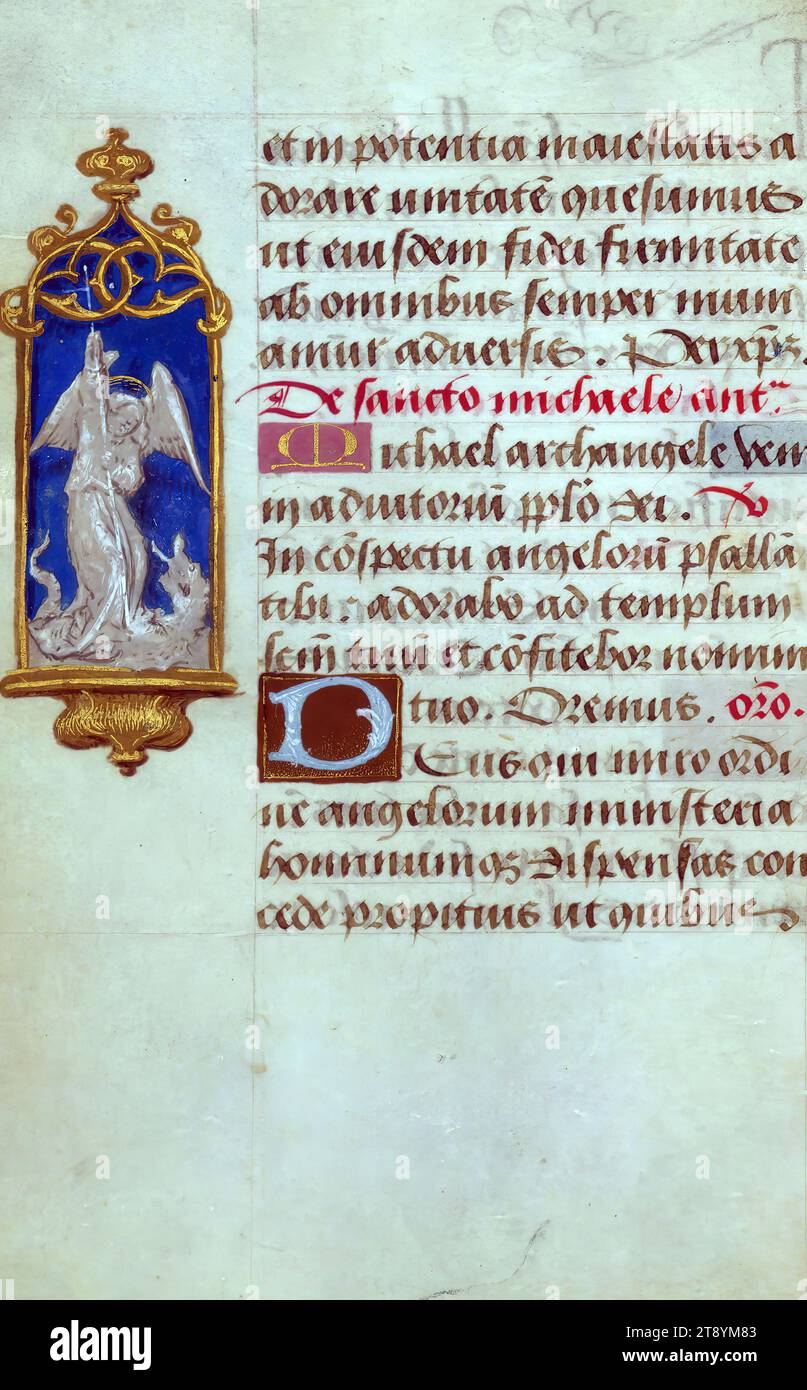 et in potentia maiestatis a
dorare unitatē quesumus
ut eiusdem fidei firmitate
ab omnibus semper muni
amur adversis. Per xp̄ʒ.
De sancto michaele ant.ᵃ
Michael archangele veni
in adiutoriū pplō dei. ꝟ
In cōspectu angelorū psallā
tibi. adorabo ad templum
scm̄ tuū et cōfitebor nomini
tuo. Oremus. orō.
Deus qui miro ordi
ne angelorum ministeria
hominumqʒ dispensas con
cede propitius ut quibus
alamy
Image ID: 2T8YM83
www.alamy.com